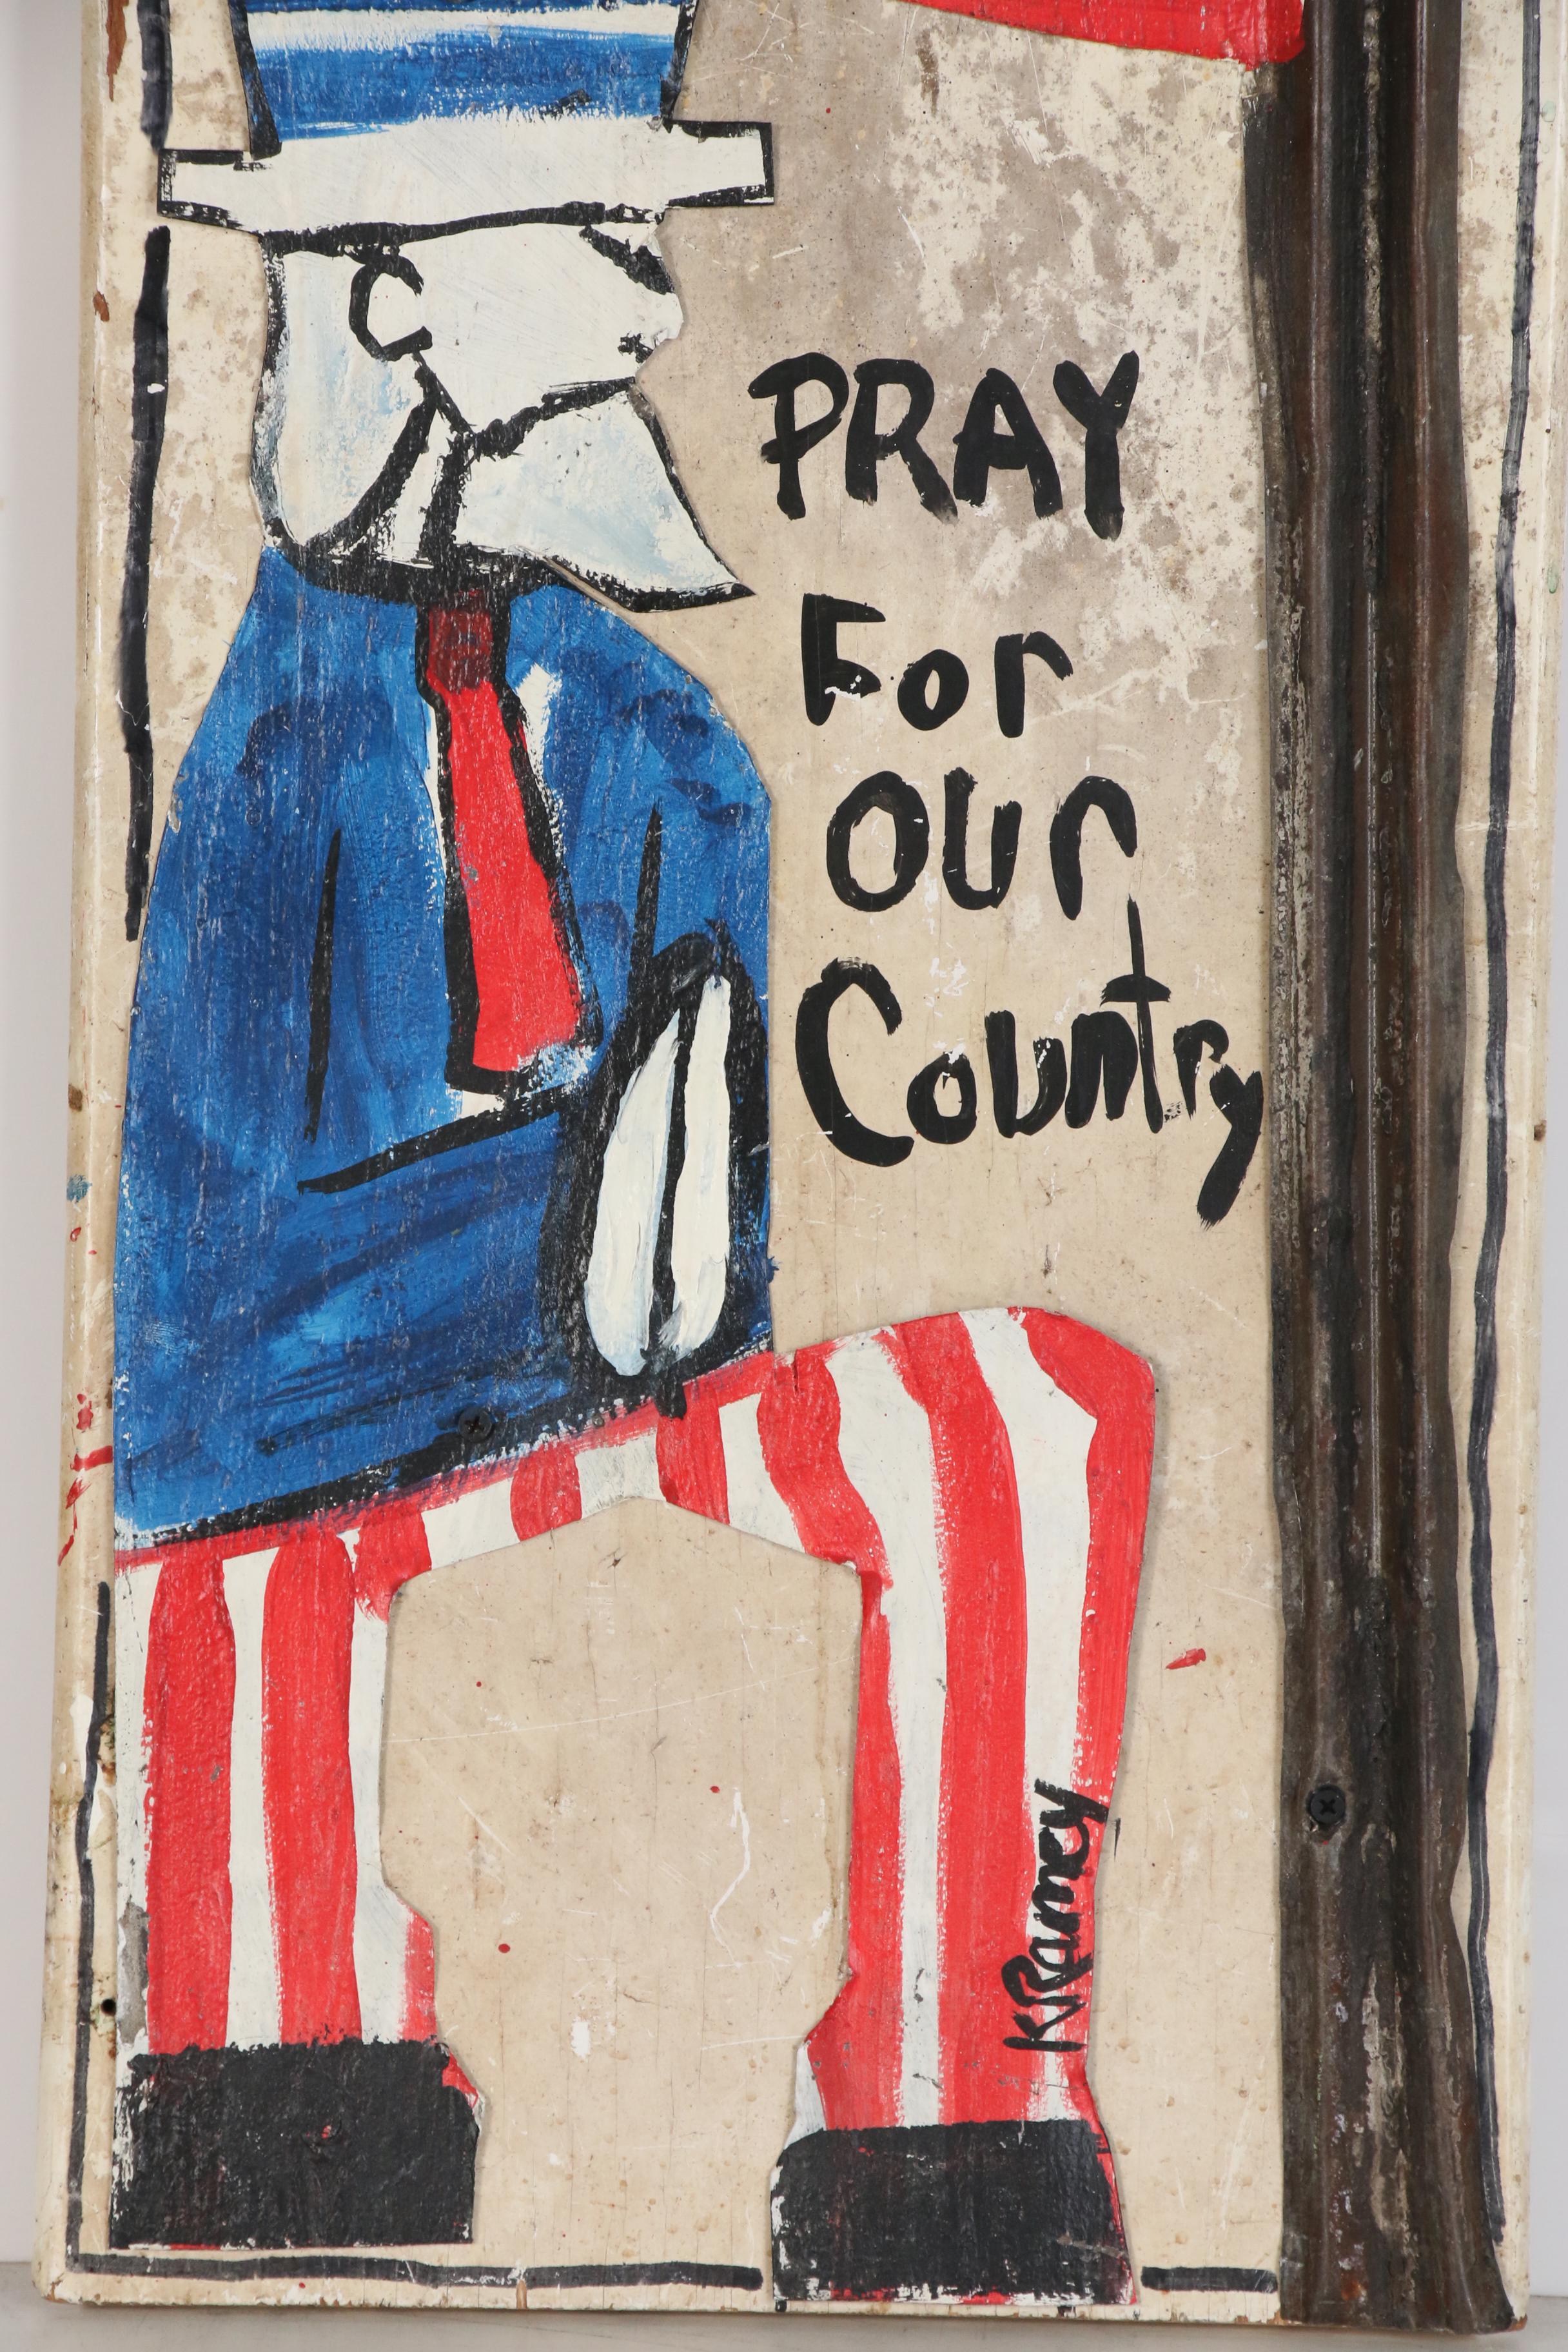 PRAY
For
our
Country
KRamey